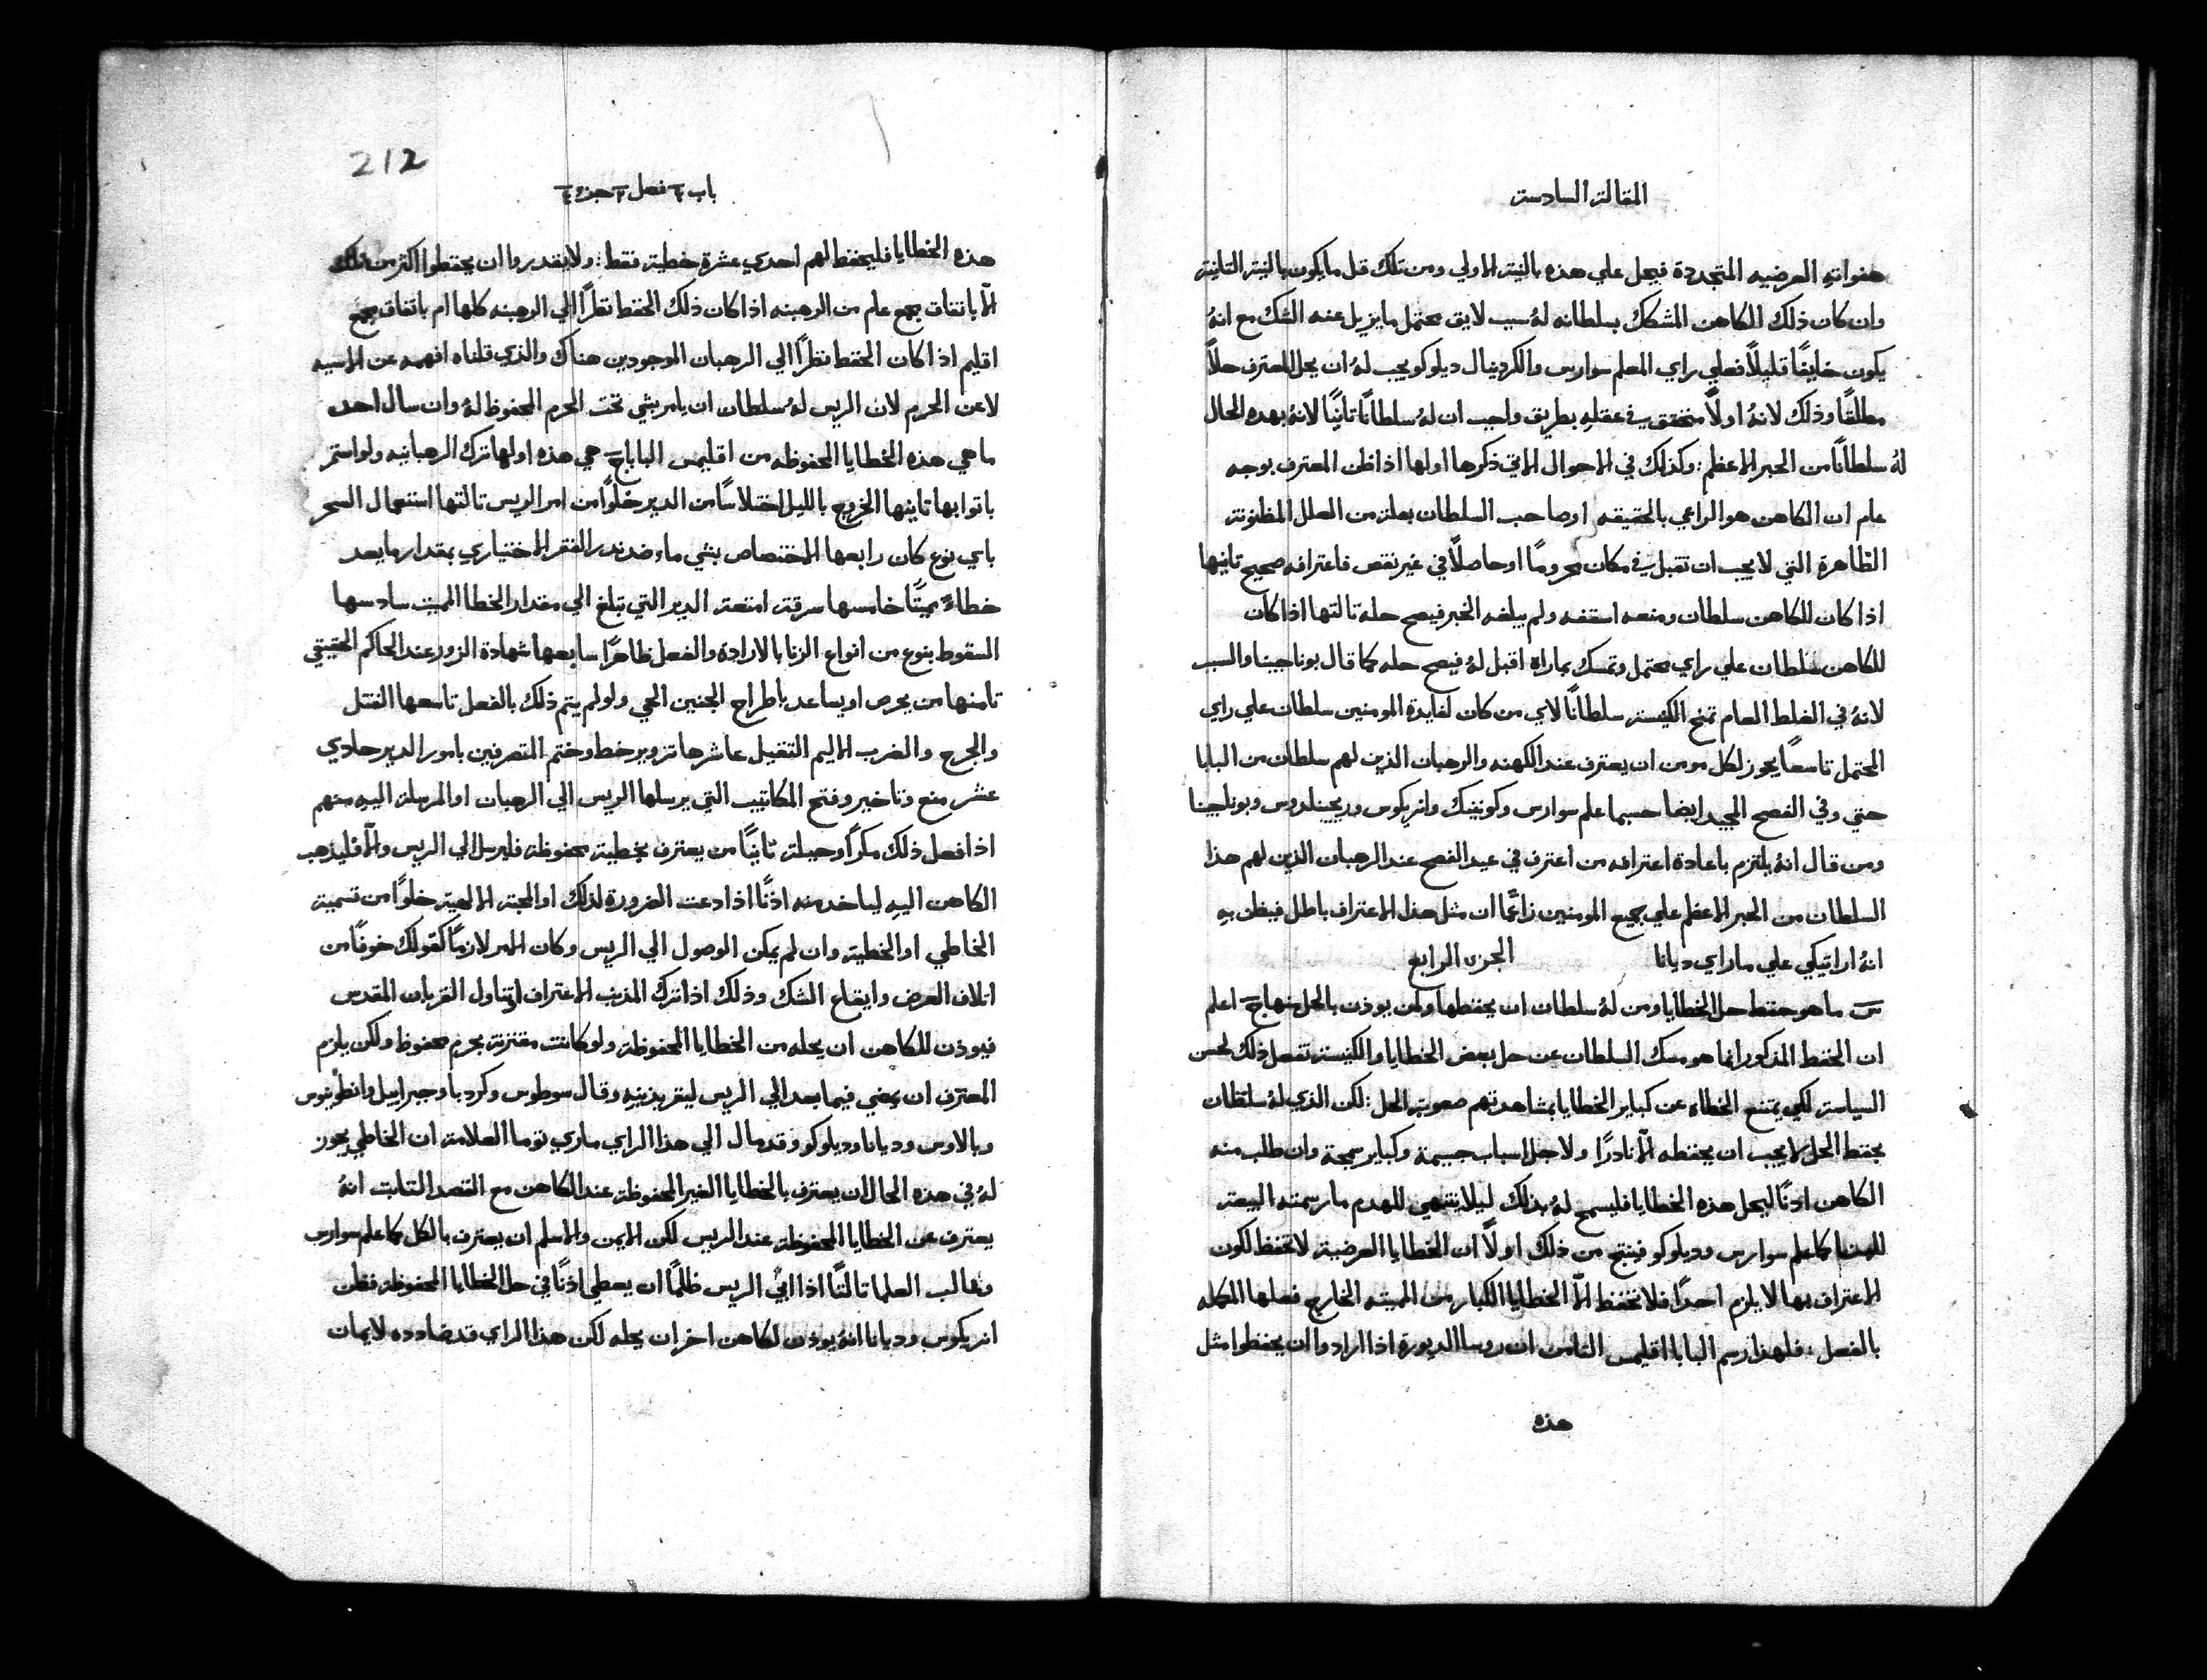 المقالة السادسة
هفواتهِ العرضيه المتجددة فيحل علي هذه بالنية الاولي ومن تلك قبل ما يكون بالنية الثانية
وان كان ذلك الكاهن المشكك بسلطانه لهُ سبب لايق محتمل ما يزيل عنه الشك مع انهُ
يكون خايفًا قليلًا فعلي راي المعلم سوارس والكردينال ديلوكو يجب لهُ ان يحل المعترف حلًّا
مطلقًا وذلك لانهُ اولًا متحقق في عقلهِ بطريق واجب ان لهُ سلطانًا ثانيًا لانهُ بهذه الحال
لهُ سلطانًا من الحبر الاعظم: وكذلك في الاحوال الاتي ذكرها اولها اذا ظن المعترف بوجه
عام ان الكاهن هو الراعي بالحقيقه اوصاحب السلطان بعلة من العلل المظنونة
الظاهرة التي لا يجب ان تقبل في مكان محرومًا او حاصلًا في غير نقص فاعترافه صحيح ثانيها
اذا كان للكاهن سلطان ومنعه اسقفه ولم يبلغه الخبر فيصح حله ثالثها اذا كان
للكاهن سلطان علي راي محتمل وتمسك بماراه اقبل لهُ فيصح حله كما قال بوناجينا والسبب
لانهُ في الغلط العام تمنح الكنيسة سلطانًا لاي من كان لفايدة المومنين سلطان علي راي
المحتمل تاسعًا يجوز لكل مومن ان يعترف عند الكهنه والرهبان الذين لهم سلطان من البابا
حتي وفي الفصح المجيد ايضا حسبما علم سوارس وكونينك وانريكوس وريجينلدوس وبوناجينا
ومن قال انهُ يلتزم باعادة اعترافه من اعترف في عيد الفصح عند الرهبان الذين لهم هذا
السلطان من الحبر الاعظم علي جميع المومنين زاعمًا ان مثل هذا الاعتراف باطل فيظن بهِ
انهُ اراتيكي علي ما راي ديانا الجزء الرابع
س ما هو حفظ حل الخطايا ومن لهُ سلطان ان يحفظها ولمن يوذن بالحل منها ج اعلم
ان الحفظ المذكور انما هو مسك السلطان عن حل بعض الخطايا والكنيسة تفعل ذلك لحسن
السياسة لكي يمتنع الخطاه عن كباير الخطايا بمشاهدتهم صعوبة الحل: لكن الذي لهُ سلطان
بحفظ الحل لا يجب ان يحفظه الّا نادرًا ولاجل اسباب جسيمة وكباير سمجة وان طلب منه
الكاهن اذنًا ليحل هذه الخطايا فليسمح لهُ بذلك ليلا ينتهي للهدم ما رسمته البيعة
للبنا كما علم سوارس وديلوكو فينتج من ذلك اولًا ان الخطايا العرضية لا تحفظ لكون
الاعتراف بها لا يلزم احدًا فلا تحفظ الّا الخطايا الكبار من المميته الخارج فعلها المكمله
بالفعل: فلهذا رسم البابا اقليمس الثامن ان روسا الديورة اذا ارادوا ان يحفظوا مثل
هذه
212
باب ٦ فصل ٣ جزء ٤
هذه الخطايا فليحفظ لهم احدي عشرة خطية فقط: ولا يقدروا ان يحفظوا اكثر من تلك
الّا باتفاق جمع عام من الرهبنه اذا كان ذلك الحفظ نظرًا الي الرهبنه كلها ام باتفاق جمع
اقليم اذا كان الحفظ نظرًا الي الرهبان الموجودين هناك والذي قلناه افهمه عن الاسيه
لا عن الحرم لان الريس لهُ سلطان ان يامر بشي تحت الحرم المحفوظ لهُ وان سال احد
ما هي هذه الخطايا المحفوظه من اقليمس البابا ج هي هذه اولها ترك الرهبانيه ولو استمر
باثوابها ثانيها الخروج بالليل اختلاسًا من الدير خلوًا من امر الريس ثالثها استعمال السحر
باي نوع كان رابعها الاختصاص بشي ماء ضد نذر الفقر الاختياري بمقدار ما يعد
خطاءً مميتًا خامسها سرقة امتعة الدير التي تبلغ الي مقدار الخطا المميت سادسها
السقوط بنوع من انواع الزنا بالارادة والفعل ظاهرًا سابعها شهادة الزور عند الحاكم الحقيقي
ثامنها من يحرص او يساعد باطراح الجنين الحي ولو لم يتم ذلك بالفعل تاسعها القتل
والجرح والضرب الاليم الثقيل عاشرها تزوير خط وختم المتصرفين بامور الدير حادي
عشر منع وتاخير وفتح المكاتيب التي يرسلها الريس الي الرهبان او المرسلة اليه منهم
اذا فعل ذلك مكرًا وحيلة ثانيًا من يعترف بخطية محفوظة فليرسل الي الريس والّا فليذهب
الكاهن اليهِ لياخد منه اذنًا اذا دعت الضرورة لذلك او المحبة الالهية خلوًا من تسمية
الخاطي او الخطية وان لم يمكن الوصول الي الريس وكان الامر لازمًا كقولك خوفًا من
اتلاف العرض وايقاع الشك وذلك اذا ترك المذنب الاعتراف او تناول القربان المقدس
فيوذن للكاهن ان يحله من الخطايا المحفوظة ولو كانت مقترنة بحرم محفوظ ولكن يلزم
المعترف ان يمضي فيما بعد الي الريس ليقر بذنبهِ وقال سوطوس وكردبا وجبراييل وانطونينوس
وبالاوس وديانا وديلوكو وقد مال الي هذا الراي ماري توما العلامة ان الخاطي يجوز
لهُ في هذه الحال ان يعترف بالخطايا الغير المحفوظة عند الكاهن مع القصد الثابت انهُ
يعترف عن الخطايا المحفوظة عند الريس لكن الايمن والاسلم ان يعترف بالكل كما علم سوارس
وغالب العلما ثالثًا اذا ابي الريس ظلمًا ان يعطي اذنًا في حل الخطايا المحفوظة فظن
انريكوس وديانا انهُ يوذن لكاهن اخر ان يحله لكن هذا الراي قد ضادده لايمان